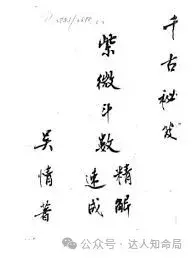 千古秘笈
紫微斗数
精解
速成
吴情著
公众号·达人知命局